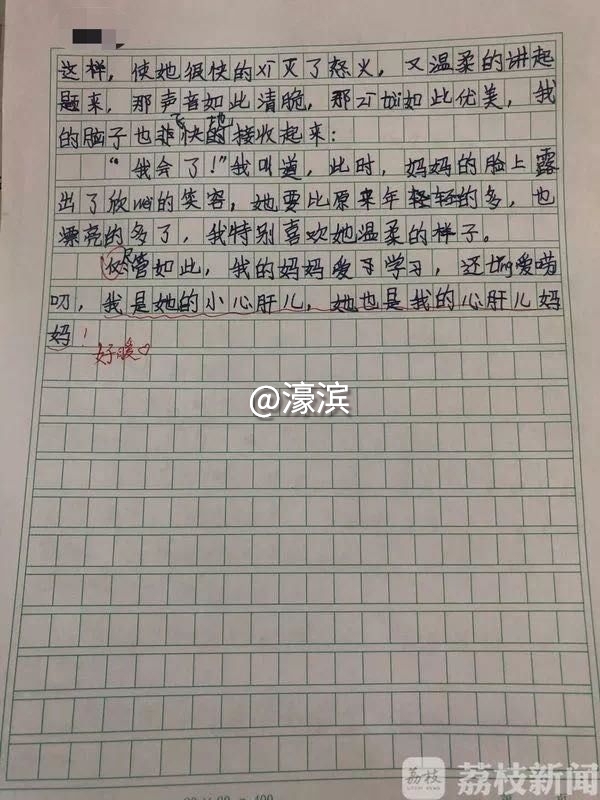 这样，使她很快的xī灭了怒火，又温柔的讲起
题来，那声音如此清脆，那zī tài如此优美，我
飞 地
的脑子也非快的接收起来：
“我会了！”我叫道，此时，妈妈的脸上露
出了欣wèi的笑容，她要比原来年轻的多，也
漂亮的多了，我特别喜欢她温柔的样子。
尽
管如此，我的妈妈爱子学习，还tǐng爱唠
叨，我是她的小心肝儿，她也是我的心肝儿妈
妈！
好暖♡
@濠滨
荔枝
荔枝新闻